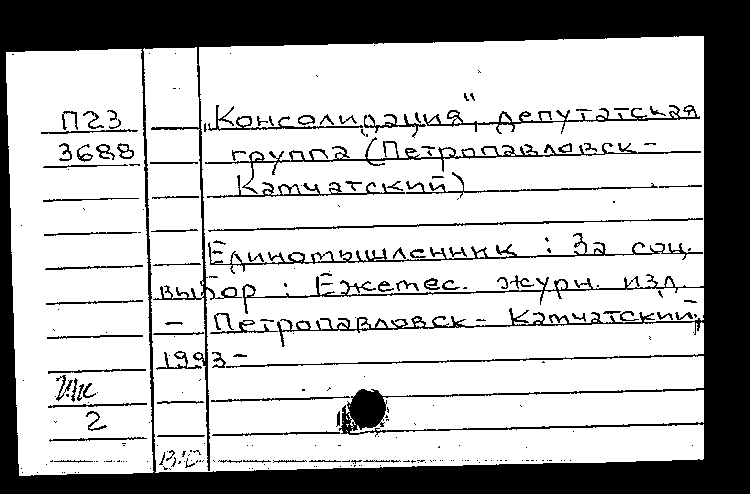 П23 „Консолидация", депутатская
3688 группа (Петропавловск-
Камчатский)
Единомышленник : За соц.
выбор : Ежемес. журн. изд.
– Петропавловск-Камчатский,
1993-
2